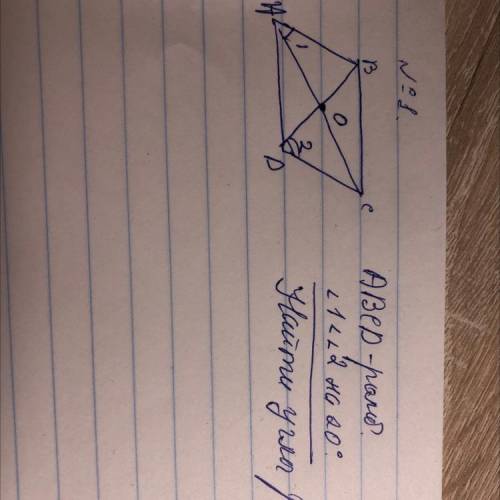 №8.
A
B
1
O
2
D
C
ABCD-ромб.
∠1<∠2 на 20°
Найти углы